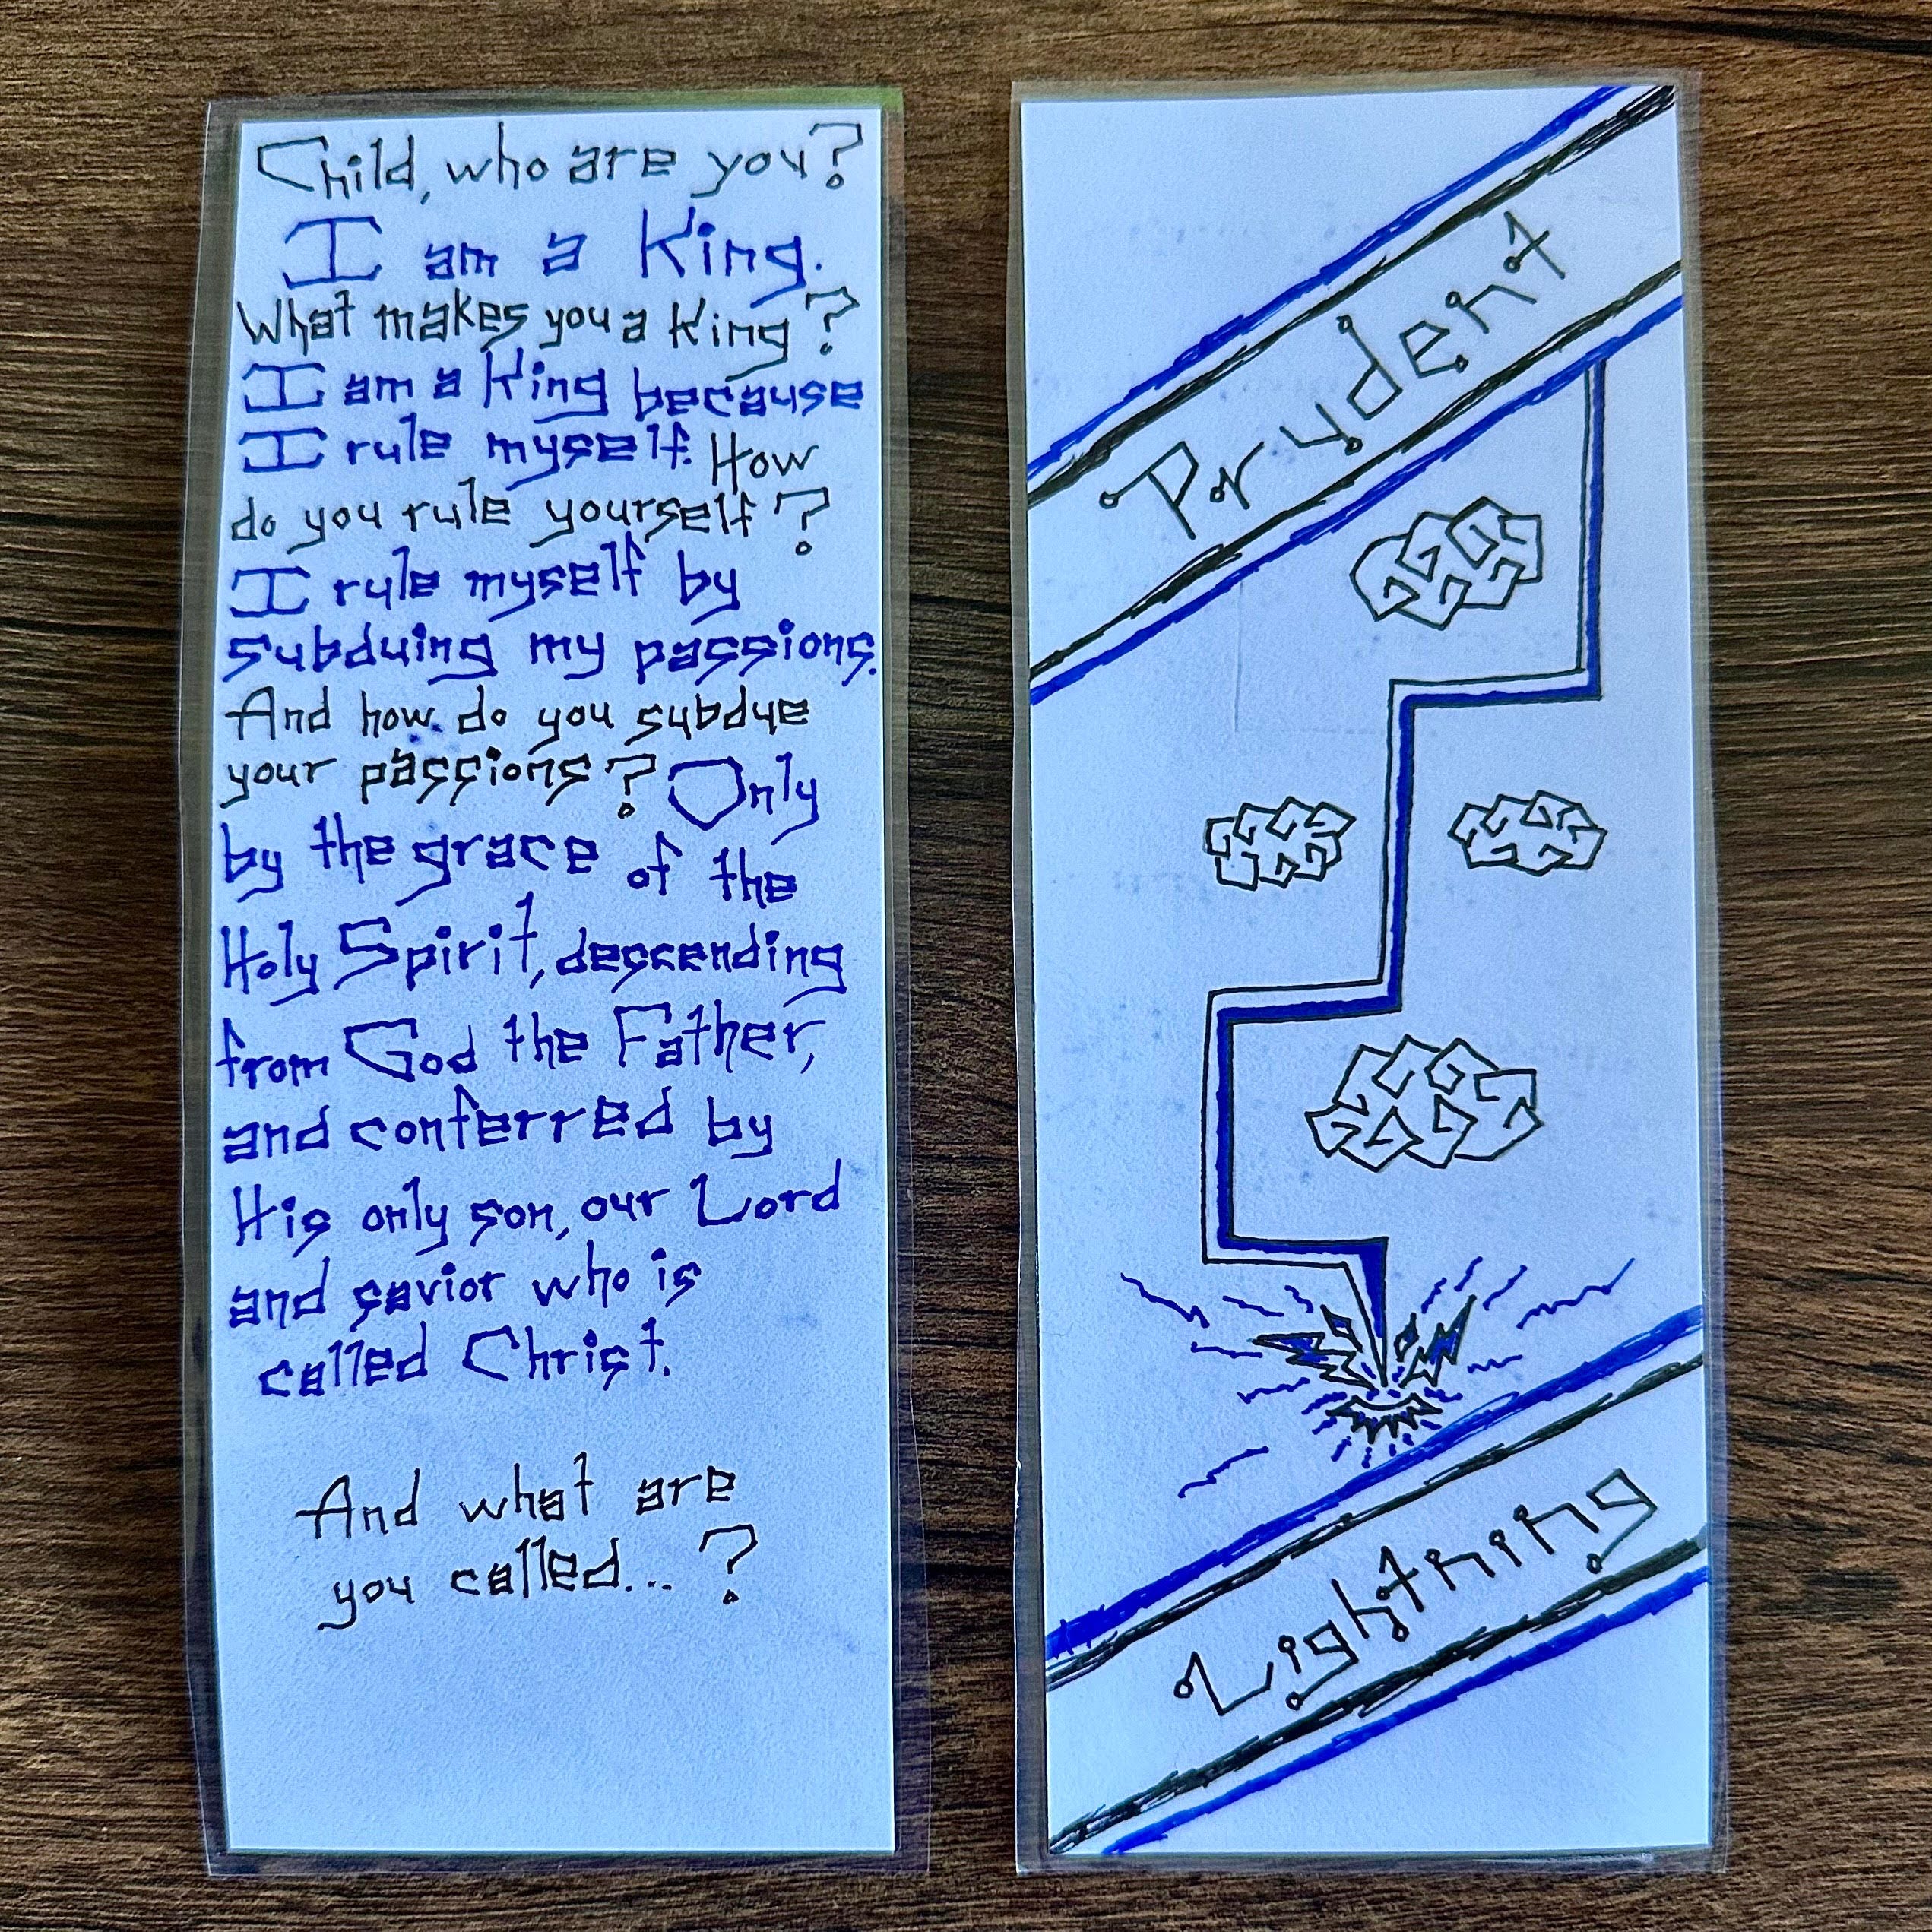 Child, who are you?
I am a King.
What makes you a King?
I am a King because
I rule myself. How
do you rule yourself?
I rule myself by
subduing my passions.
And how do you subdue
your passions? Only
by the grace of the
Holy Spirit, descending
from God the Father,
and conferred by
His only son, our Lord
and savior who is
called Christ.
And what are
you called...?
Prudent
Lightning